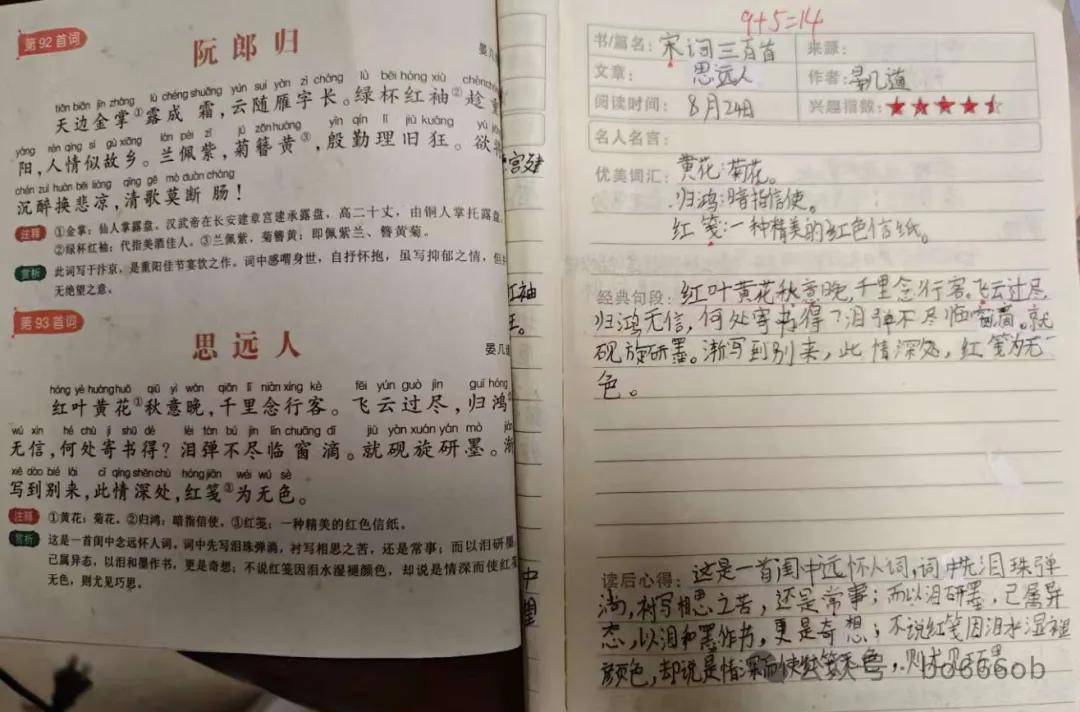 第92首词
阮郎归
晏几
tiān biān jīn zhǎng lù chéng shuāng yún suí yàn zì cháng lǜ bēi hóng xiù chèn
天边金掌①露成霜,云随雁字长。绿杯红袖②趁重
yáng rén qíng sì gù xiāng lán pèi zǐ jú zān huáng yīn qín lǐ jiù kuáng yù
阳,人情似故乡。兰佩紫,菊簪黄③,殷勤理旧狂。欲将
chén zuì huàn bēi liáng qīng gē mò duàn cháng
沉醉换悲凉,清歌莫断肠!
注释 ①金掌:仙人掌露盘。汉武帝在长安建章宫建承露盘,高二十丈,由铜人掌托露盘。
②绿杯红袖:代指美酒佳人。③兰佩紫,菊簪黄:即佩紫兰、簪黄菊。
赏析 此词写于汴京,是重阳佳节宴饮之作。词中感喟身世,自抒怀抱,虽写抑郁之情,但并
无绝望之意。
第93首词
思远人
晏几道
hóng yè huáng huā qiū yì wǎn qiān lǐ niàn xíng kè fēi yún guò jìn guī hóng
红叶黄花①秋意晚,千里念行客。飞云过尽,归鸿
wú xìn hé chù jì shū dé lèi tán bú jìn lín chuāng dī jiù yàn xuán yán mò jiàn
无信,何处寄书得?泪弹不尽临窗滴。就砚旋研墨。渐
xiě dào bié lái cǐ qíng shēn chù hóng jiān wéi wú sè
写到别来,此情深处,红笺③为无色。
注释 ①黄花:菊花。②归鸿:暗指信使。③红笺:一种精美的红色信纸。
赏析 这是一首闺中念远怀人词,词中先写泪珠弹滴,衬写相思之苦,还是常事;而以泪研墨
已属异态,以泪和墨作书,更是奇想;不说红笺因泪水湿褪颜色,却说是情深而使红笺
无色,则尤见巧思。
宫建
红袖
王。
中
9+5=14
书/篇名:宋词三百首 来源:
文章:思远人 作者:晏几道
阅读时间:8月24日 兴趣指数:★★★★
名人名言:
优美词汇:黄花:菊花。
归鸿:暗指信使。
红笺:一种精美的红色信纸。
经典句段:红叶黄花秋意晚,千里念行客。飞云过尽,
归鸿无信,何处寄书得?泪弹不尽临窗滴。就
砚旋研墨。渐写到别来,此情深处,红笺为无
色。
读后心得:这是一首闺中远怀人词,词中先泪珠弹
滴,衬写相思之苦,还是常事;而以泪研墨,已属异
态,以泪和墨作书,更是奇想;不说红笺因泪水湿褪
颜色,却说是情深而使红笺无色,则尤见巧思
bo666ob